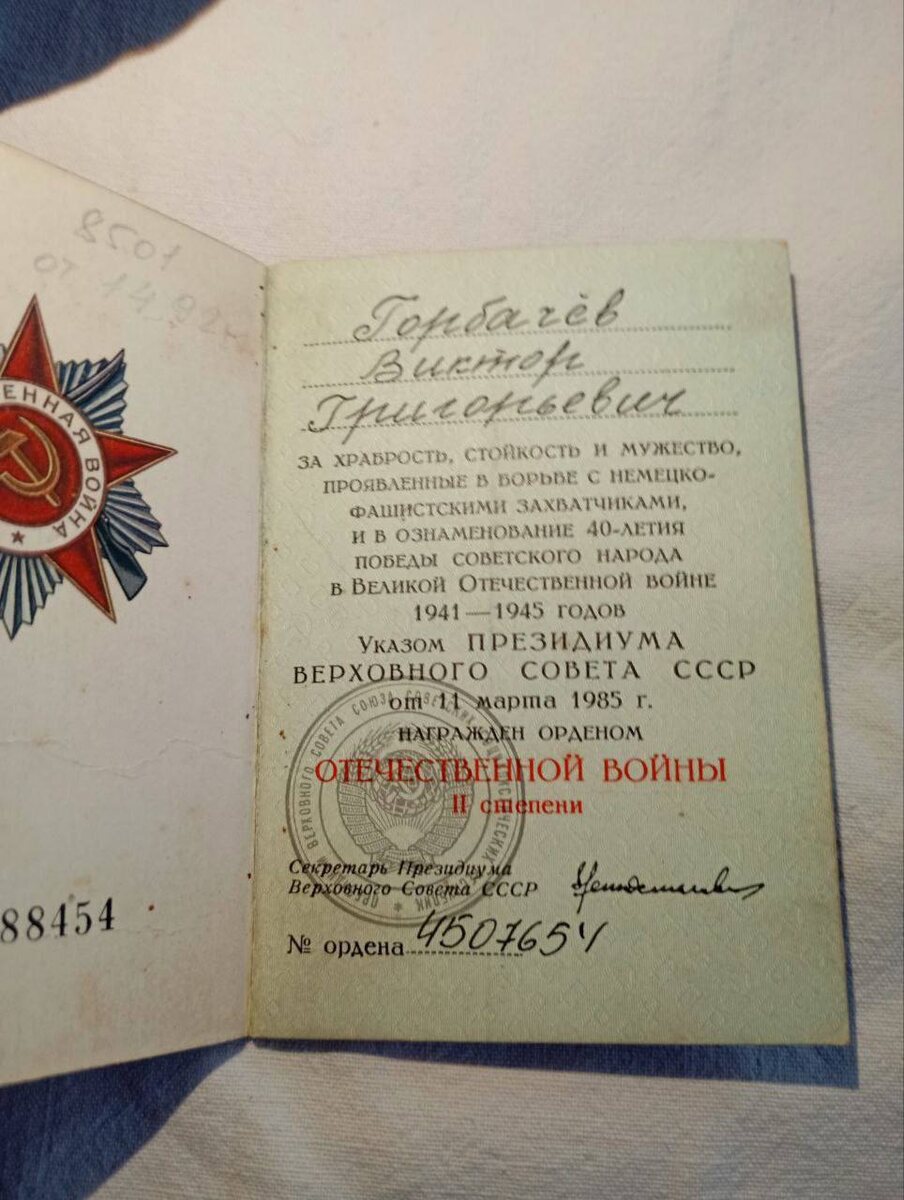 8501
от 14.
ЕННАЯ ВОЙНА
88454
Горбачёв
Виктор
Григорьевич
ЗА ХРАБРОСТЬ, СТОЙКОСТЬ И МУЖЕСТВО,
ПРОЯВЛЕННЫЕ В БОРЬБЕ С НЕМЕЦКО-
ФАШИСТСКИМИ ЗАХВАТЧИКАМИ,
И В ОЗНАМЕНОВАНИЕ 40-ЛЕТИЯ
ПОБЕДЫ СОВЕТСКОГО НАРОДА
В ВЕЛИКОЙ ОТЕЧЕСТВЕННОЙ ВОЙНЕ
1941—1945 ГОДОВ
УКАЗОМ ПРЕЗИДИУМА
ВЕРХОВНОГО СОВЕТА СССР
от 11 марта 1985 г.
НАГРАЖДЕН ОРДЕНОМ
ОТЕЧЕСТВЕННОЙ ВОЙНЫ
II степени
ВЕРХОВНОГО СОВЕТА СОЮЗА СОВЕТСКИХ
Секретарь Президиума
Верховного Совета СССР
№ ордена 4507654